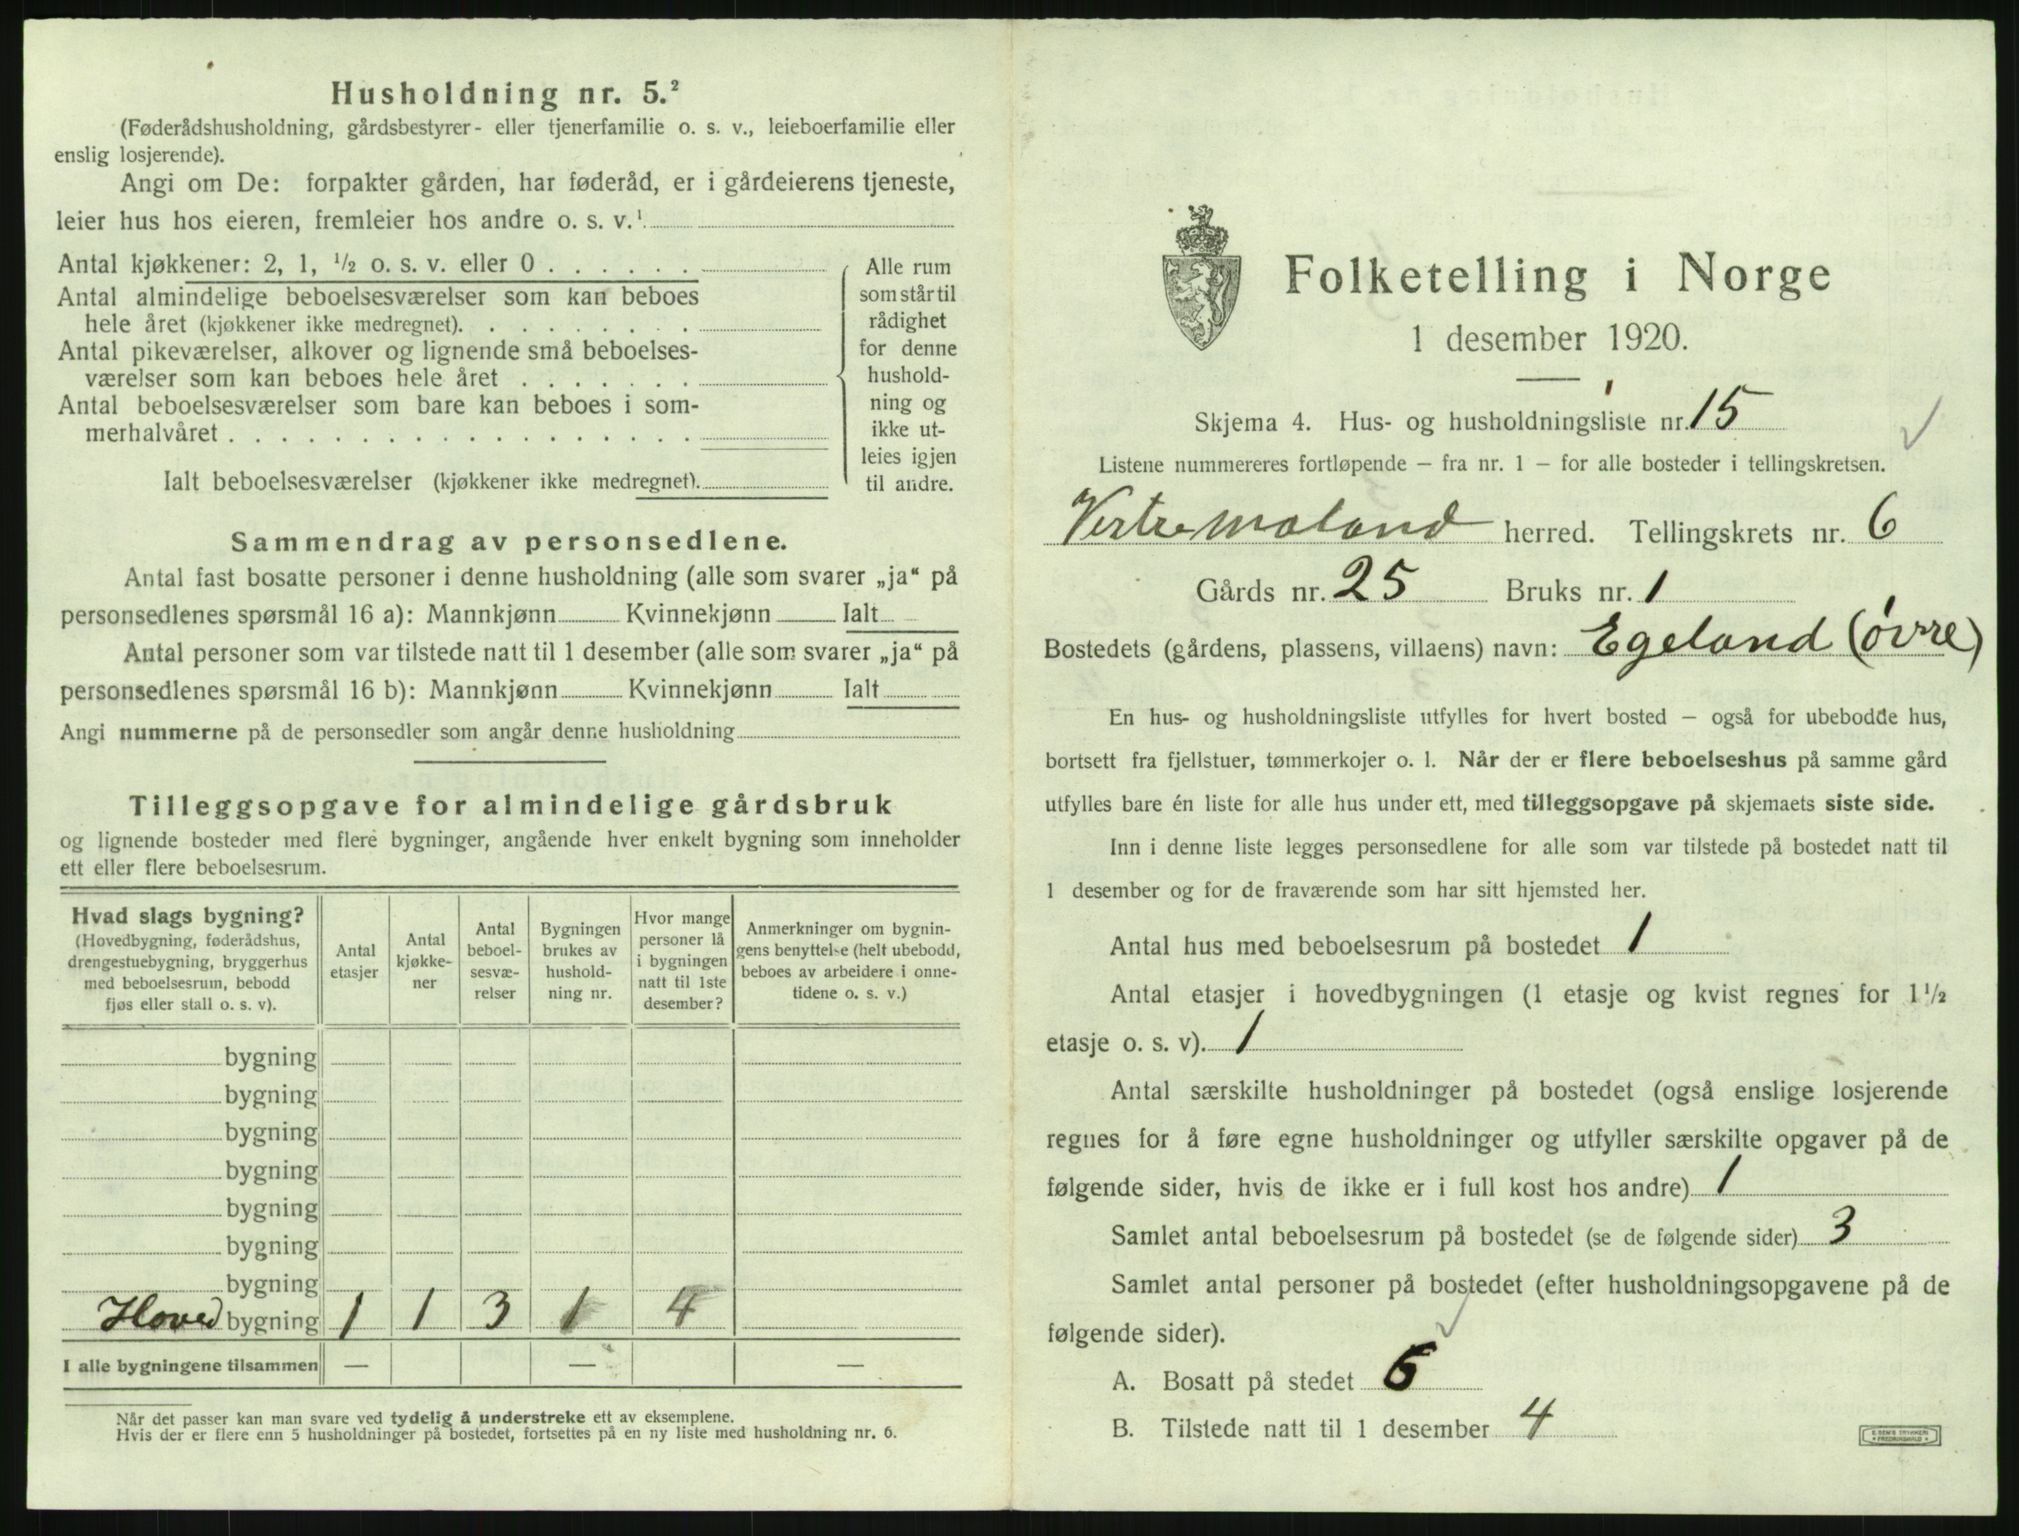 Husholdning nr. 5.²
(Føderådshusholdning, gårdsbestyrer- eller tjenerfamilie o. s. v., leieboerfamilie eller
enslig losjerende).
Angi om De: forpakter gården, har føderåd, er i gårdeierens tjeneste,
leier hus hos eieren, fremleier hos andre o. s. v.¹
Antal kjøkkener: 2, 1, ½ o. s. v. eller 0 . . . . . .
Antal almindelige beboelsesværelser som kan beboes
hele året (kjøkkener ikke medregnet). . . . . . . . .
Antal pikeværelser, alkover og lignende små beboelses-
værelser som kan beboes hele året . . . . . . .
Antal beboelsesværelser som bare kan beboes i som-
merhalvåret . . . . . . . . . . . . . . . . . .
Ialt beboelsesværelser (kjøkkener ikke medregnet).
Alle rum
som står til
rådighet
for denne
hushold-
ning og
ikke ut-
leies igjen
til andre.
Sammendrag av personsedlene.
Antal fast bosatte personer i denne husholdning (alle som svarer „ja“ på
personsedlenes spørsmål 16 a): Mannkjønn Kvinnekjønn Ialt
Antal personer som var tilstede natt til 1 desember (alle som svarer „ja“ på
personsedlenes spørsmål 16 b): Mannkjønn Kvinnekjønn Ialt
Angi nummerne på de personsedler som angår denne husholdning
Tilleggsopgave for almindelige gårdsbruk
og lignende bosteder med flere bygninger, angående hver enkelt bygning som inneholder
ett eller flere beboelsesrum.
Hvad slags bygning?
(Hovedbygning, føderådshus,
drengestuebygning, bryggerhus
med beboelsesrum, bebodd
fjøs eller stall o. s. v).
Antal
etasjer
Antal
kjøkke-
ner
Antal
beboel-
sesvæ-
relser
Bygningen
brukes av
hushold-
ning nr.
Hvor mange
personer lå
i bygningen
natt til 1ste
desember?
Anmerkninger om bygnin-
gens benyttelse (helt ubebodd,
beboes av arbeidere i onne-
tidene o. s. v.)
bygning
bygning
bygning
bygning
bygning
bygning
bygning
Hoved bygning 1 1 3 1 4
I alle bygningene tilsammen — — —
Når det passer kan man svare ved tydelig å understreke ett av eksemplene.
Hvis der er flere enn 5 husholdninger på bostedet, fortsettes på en ny liste med husholdning nr. 6.
Folketelling i Norge
1 desember 1920.
Skjema 4. Hus- og husholdningsliste nr. 15
Listene nummereres fortløpende – fra nr. 1 – for alle bosteder i tellingskretsen.
Vestre Moland herred. Tellingskrets nr. 6
Gårds nr. 25 Bruks nr. 1
Bostedets (gårdens, plassens, villaens) navn: Egeland (øvre)
En hus- og husholdningsliste utfylles for hvert bosted – også for ubebodde hus,
bortsett fra fjellstuer, tømmerkojer o. l. Når der er flere beboelseshus på samme gård
utfylles bare én liste for alle hus under ett, med tilleggsopgave på skjemaets siste side.
Inn i denne liste legges personsedlene for alle som var tilstede på bostedet natt til
1 desember og for de fraværende som har sitt hjemsted her.
Antal hus med beboelsesrum på bostedet 1
Antal etasjer i hovedbygningen (1 etasje og kvist regnes for 1½
etasje o. s. v). 1
Antal særskilte husholdninger på bostedet (også enslige losjerende
regnes for å føre egne husholdninger og utfyller særskilte opgaver på de
følgende sider, hvis de ikke er i full kost hos andre) 1
Samlet antal beboelsesrum på bostedet (se de følgende sider) 3
Samlet antal personer på bostedet (efter husholdningsopgavene på de
følgende sider).
A. Bosatt på stedet
B. Tilstede natt til 1 desember 4